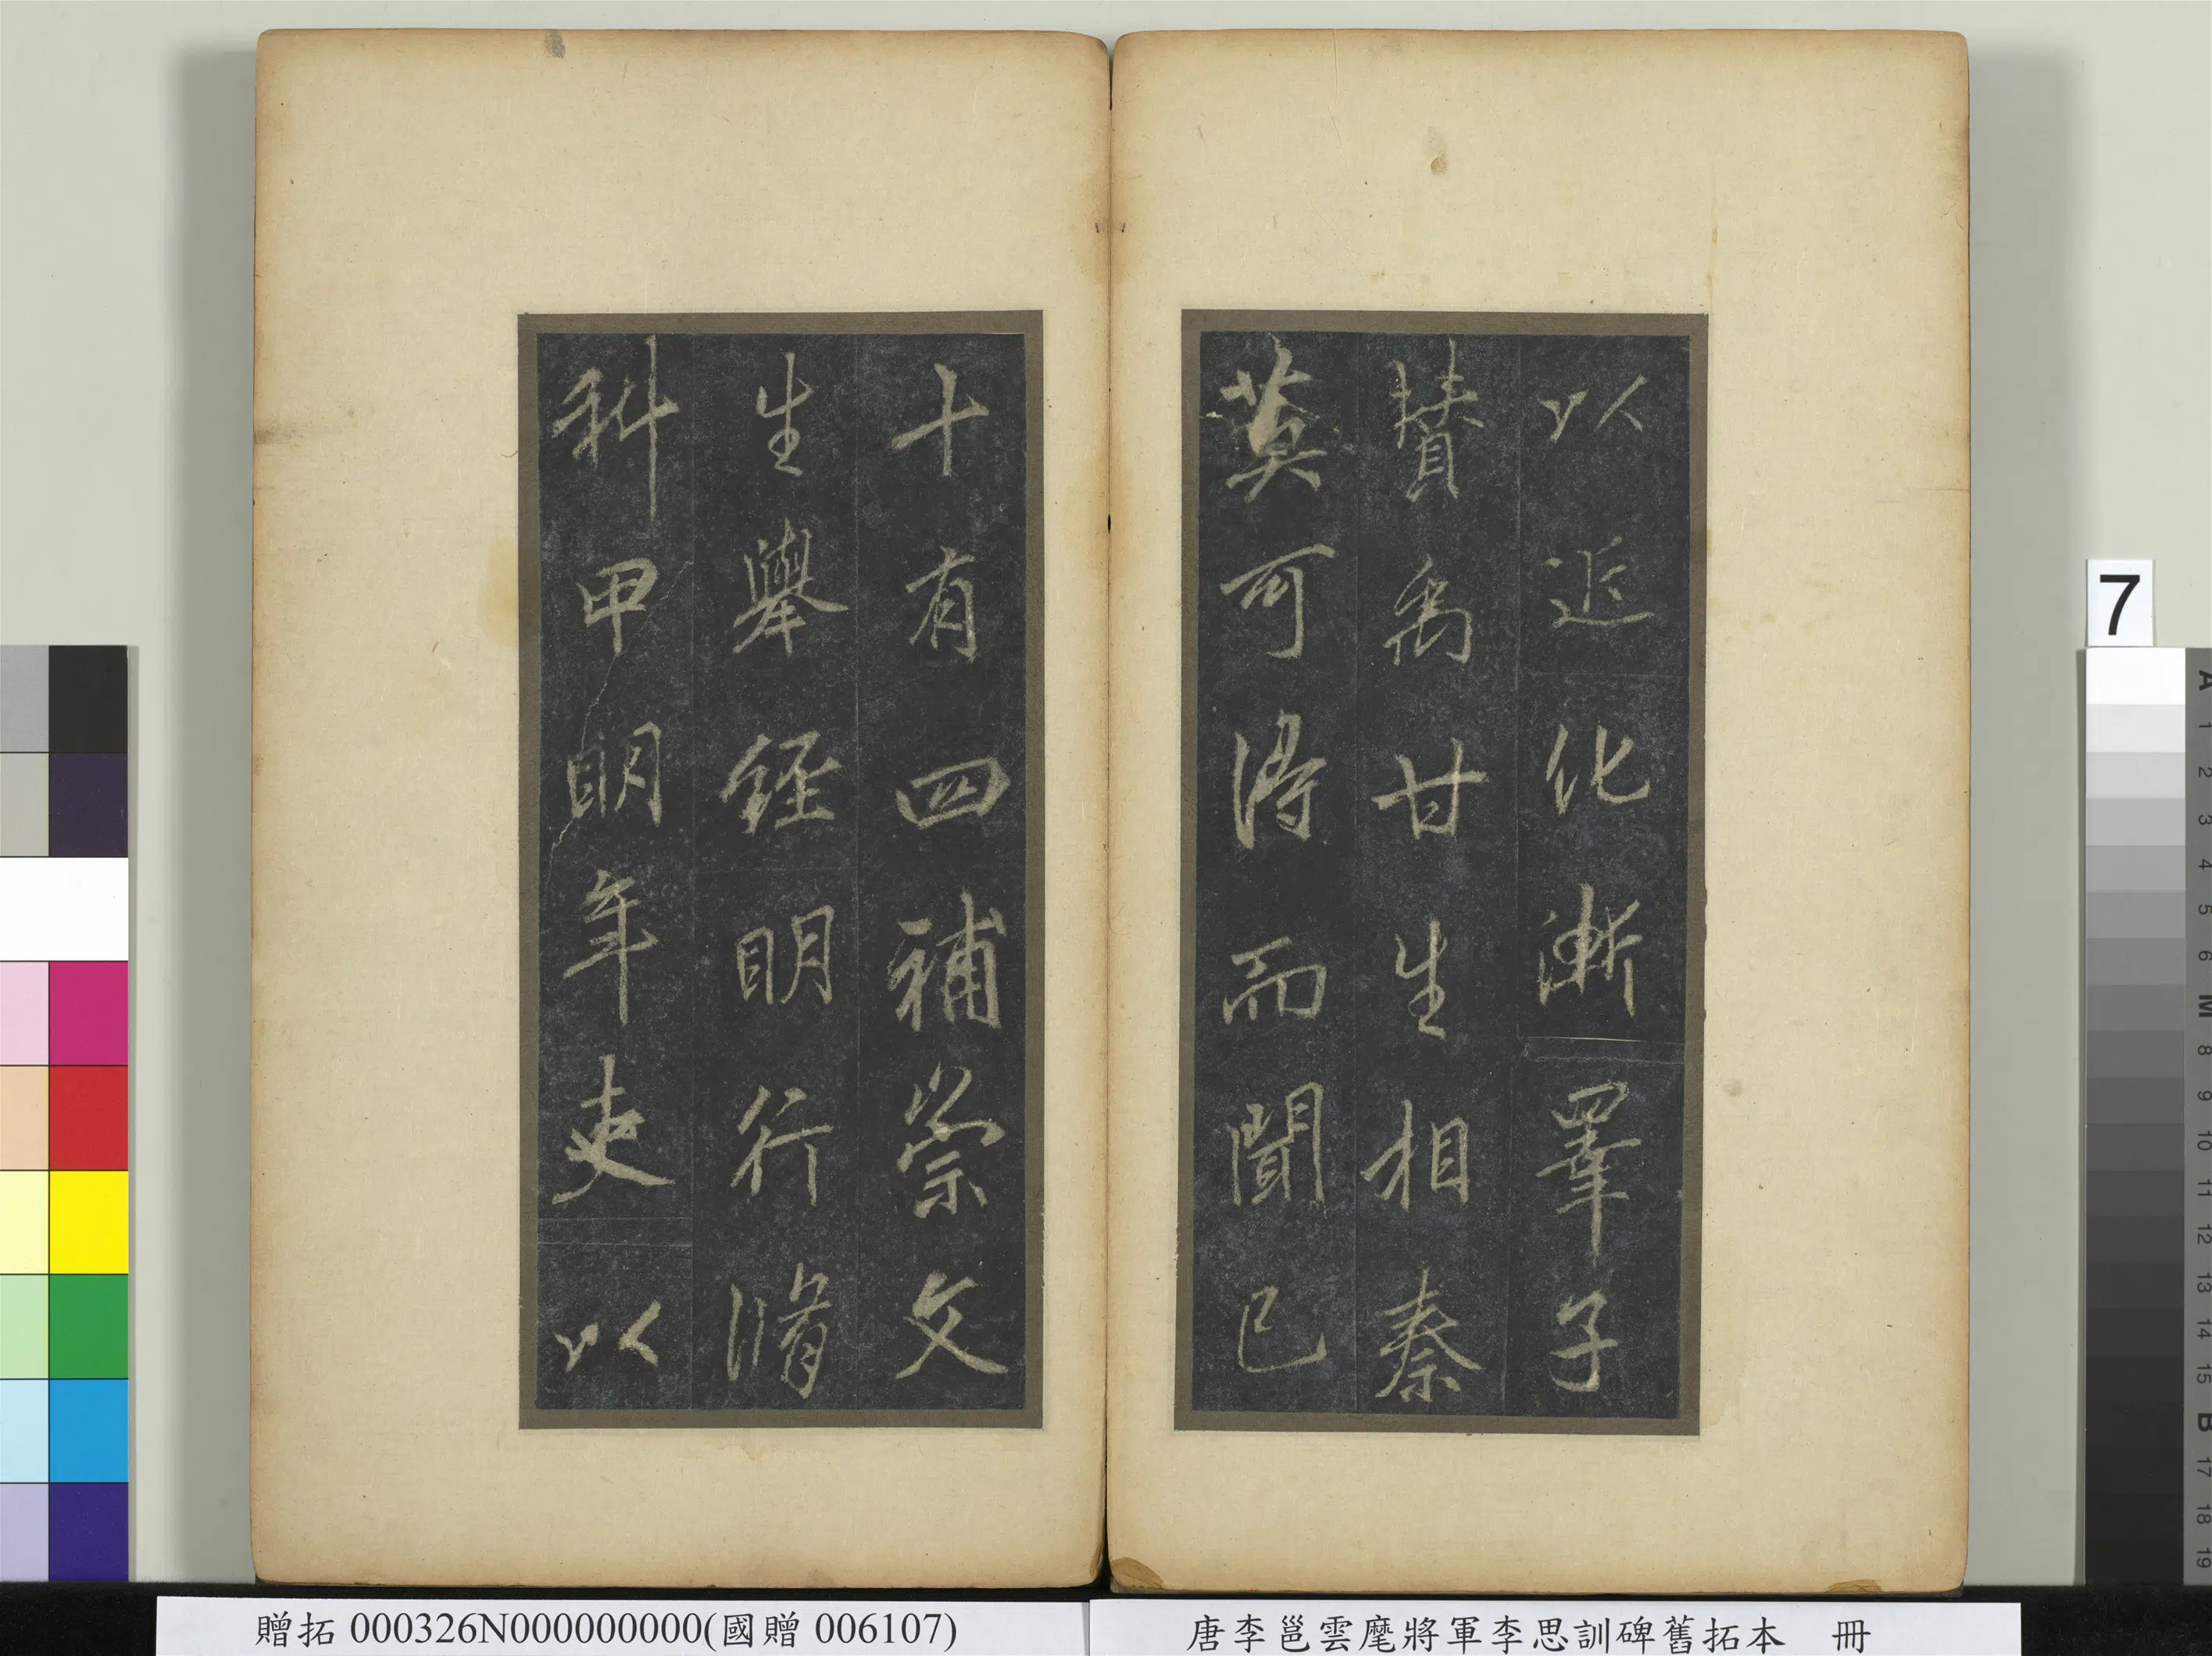 以近化漸羣子
賛禹甘生相秦
莫可得而聞已
十有四補崇文
生舉經明行脩
科甲明年吏以
7
A 1 2 3 4 5 6 M 8 9 10 11 12 13 14 15 B 17 18 19
贈拓 000326N000000000(國贈 006107)
唐李邕雲麾將軍李思訓碑舊拓本 冊